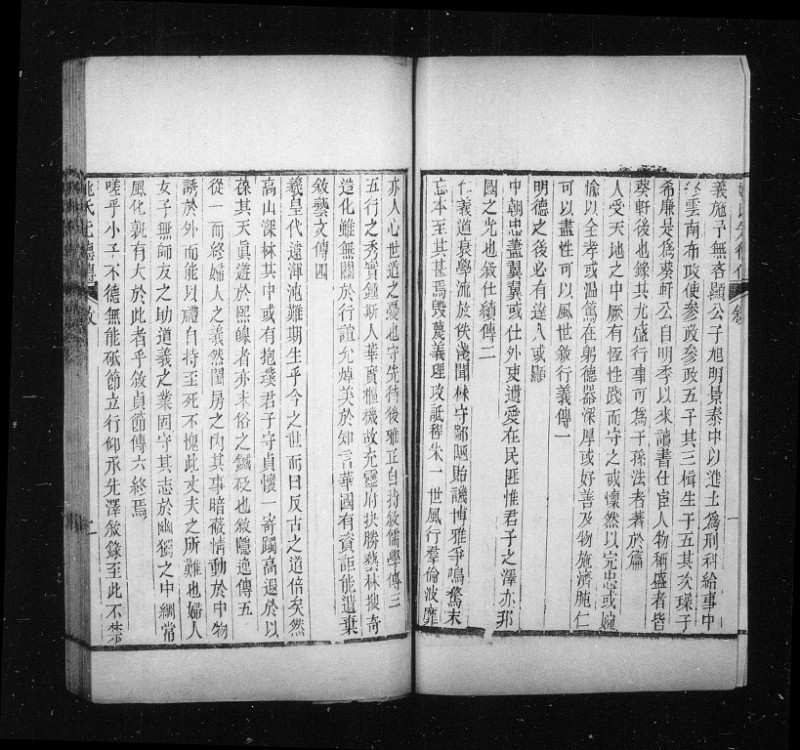 義施予無吝顯公子旭明景泰中以進士為刑科給事中
雲南布政使參政參政五子其三楫生子五其次琛子
希廉是為葵軒公自明季以來讀書仕宦人物稱盛者皆
葵軒後也錄其尤盛行事可為子孫法者著於篇
人受天地之中厥有恆性踐而守之或懍然以完忠或婉
愉以全孝或溫篤在躬德器深厚或好善及物施濟肫仁
可以盡性可以風世敘行義傳一
明德之後必有達人或顯
中朝忠藎翼翼或仕外吏遺愛在民匪惟君子之澤亦邦
國之光也敘仕績傳二
仁義道衰學流放佚淺聞株守鄙陋貽譏博雅爭鳴騖末
忘本至其甚焉毀蔑義理攻詆程朱一世風行羣倫波靡
亦人心世道之憂也守先待後雅正自持敘儒學傳三
五行之秀實鍾斯人華實樞機故充靈府抉勝藝林搜奇
造化雖無關於行誼允焯美於知言華國有資詎能遺棄
敘藝文傳四
羲皇代遠渾沌難期生乎今之世而曰反古之道倍矣然
高山深林其中或有抱璞君子守貞懷一寄躅高遐於以
葆其天眞遊於熙皞者亦末俗之鍼砭也敘隱逸傳五
從一而終婦人之義然閨房之內其事暗蔽情動於中物
誘於外而能以禮自持至死不愧此丈夫之所難也婦人
女子無師友之助道義之業固守其志於幽獨之中綱常
風化孰有大於此者乎敘貞節傳六終焉
嗟乎小子不德無能砥節立行仰承先澤敘錄至此不禁
氏先德傳 敘 二